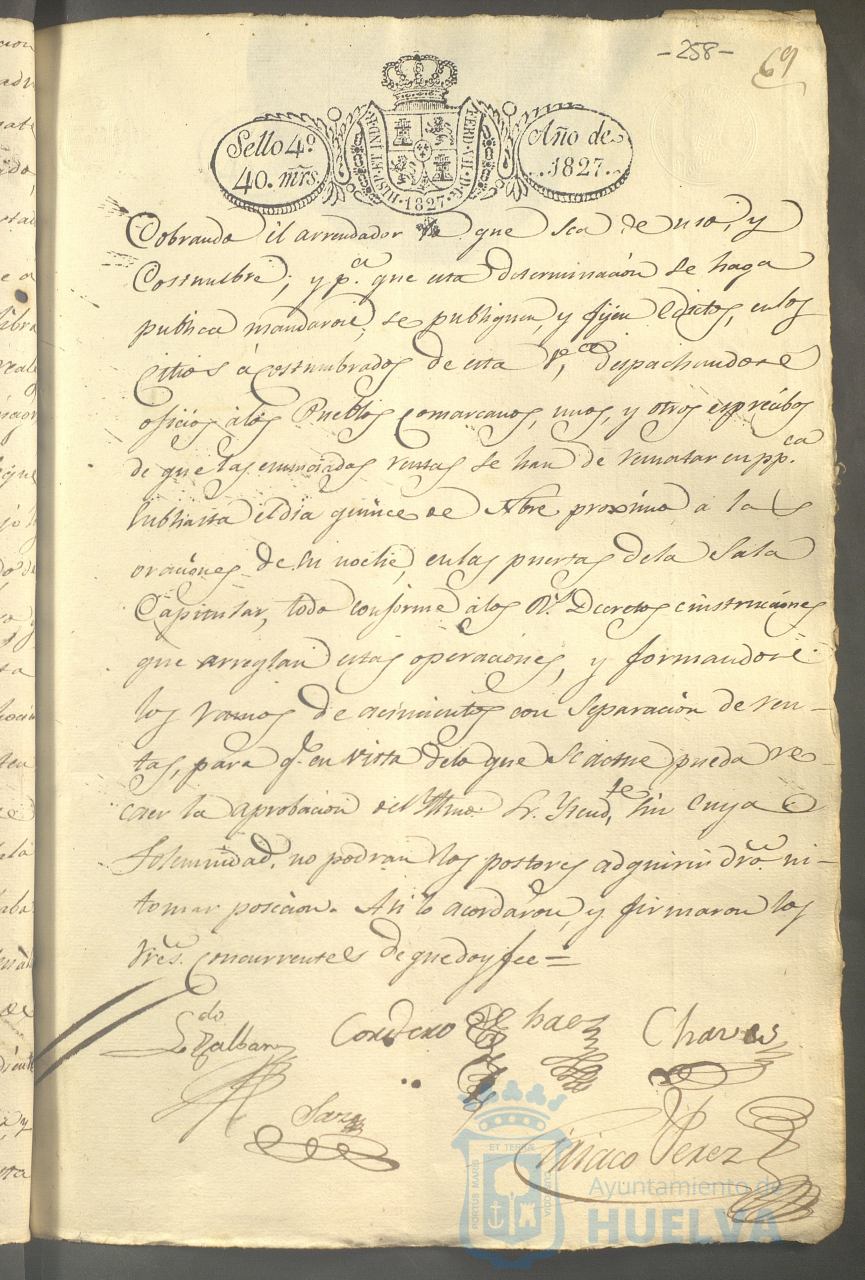 -258-
69
Sello 4º
40. mrs.
HISP. ET IND. R.
FERD. VII. D. G.
1827
Año de
1827.
Cobrando el arrendador lo que sea de uso, y
Costumbre; y pª. que esta determinación se haga
publica mandaron, se publiquen, y fijen Edictos, en los
Citios acostumbrados de esta Vª, despachandose
oficios á los Pueblos Comarcanos, unos, y otros expresibos
de que las enunciadas rentas se han de rematar en ppca
Subhasta el dia quince de Nbre proximo a las
oraciones de su noche, en las puertas de la Sala
Capitular, todo conforme á los Rs. Decretos e instruciones
que arreglan estas operaciones, y formandose
los ramos de acimientos con Separacion de ren-
tas, para q.e en vista de lo que se actue pueda re-
caer la aprobacion del Yltmo. Sr. Yntend.te, sin cuya
Solemnidad. no podran los postores adquirir dro. ni
tomar posicion. Asi lo acordaron, y firmaron los
Sres. Concurrentes de que doy fee=
Ldo Zalbar
Cordero
Chaves
Saez
Ciriaco Perez
PORTUS MARIS ET TERRAE CUSTODIA
Ayuntamiento de
HUELVA